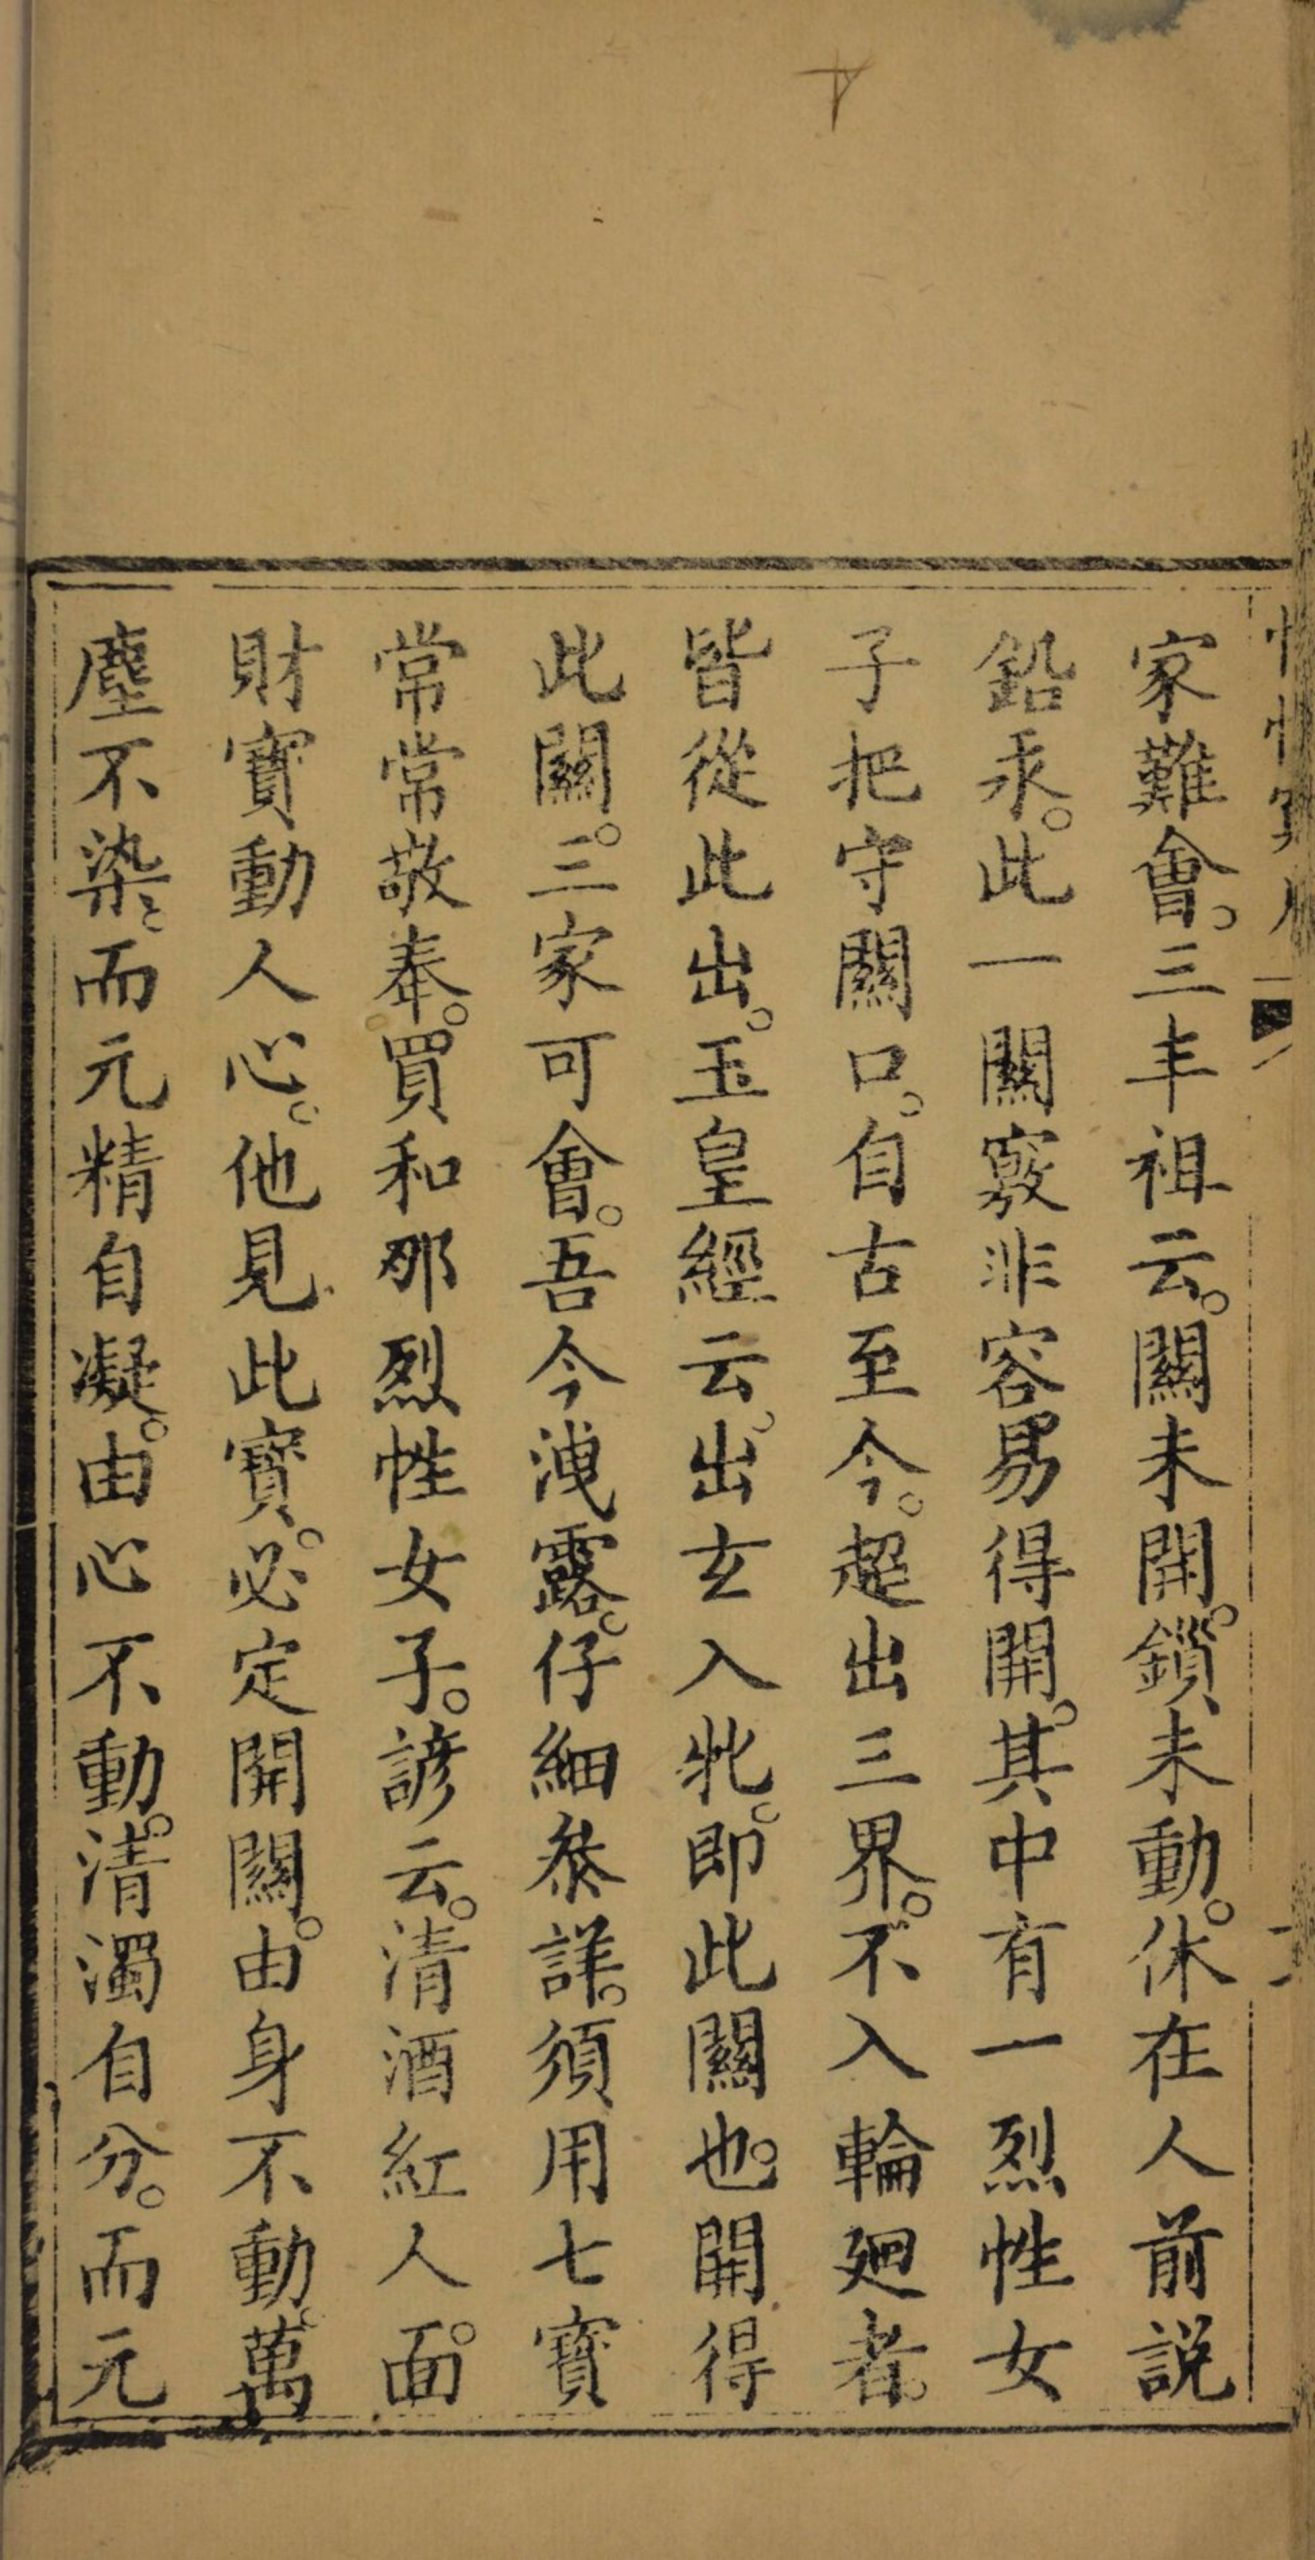 家難會。三丰祖云。關未開。鎖未動。休在人前説
鉛汞。此一關竅非容易得開。其中有一烈性女
子把守關口。自古至今。超出三界。不入輪廻者。
皆從此出。玉皇經云。出玄入牝。即此關也。開得
此關。三家可會。吾今洩露。仔細叅詳。須用七寶
常常敬奉。買和那烈性女子。諺云。清酒紅人面。
財寳動人心。他見此寳。必定開關。由身不動。萬
塵不染。而元精自凝。由心不動。清濁自分。而元